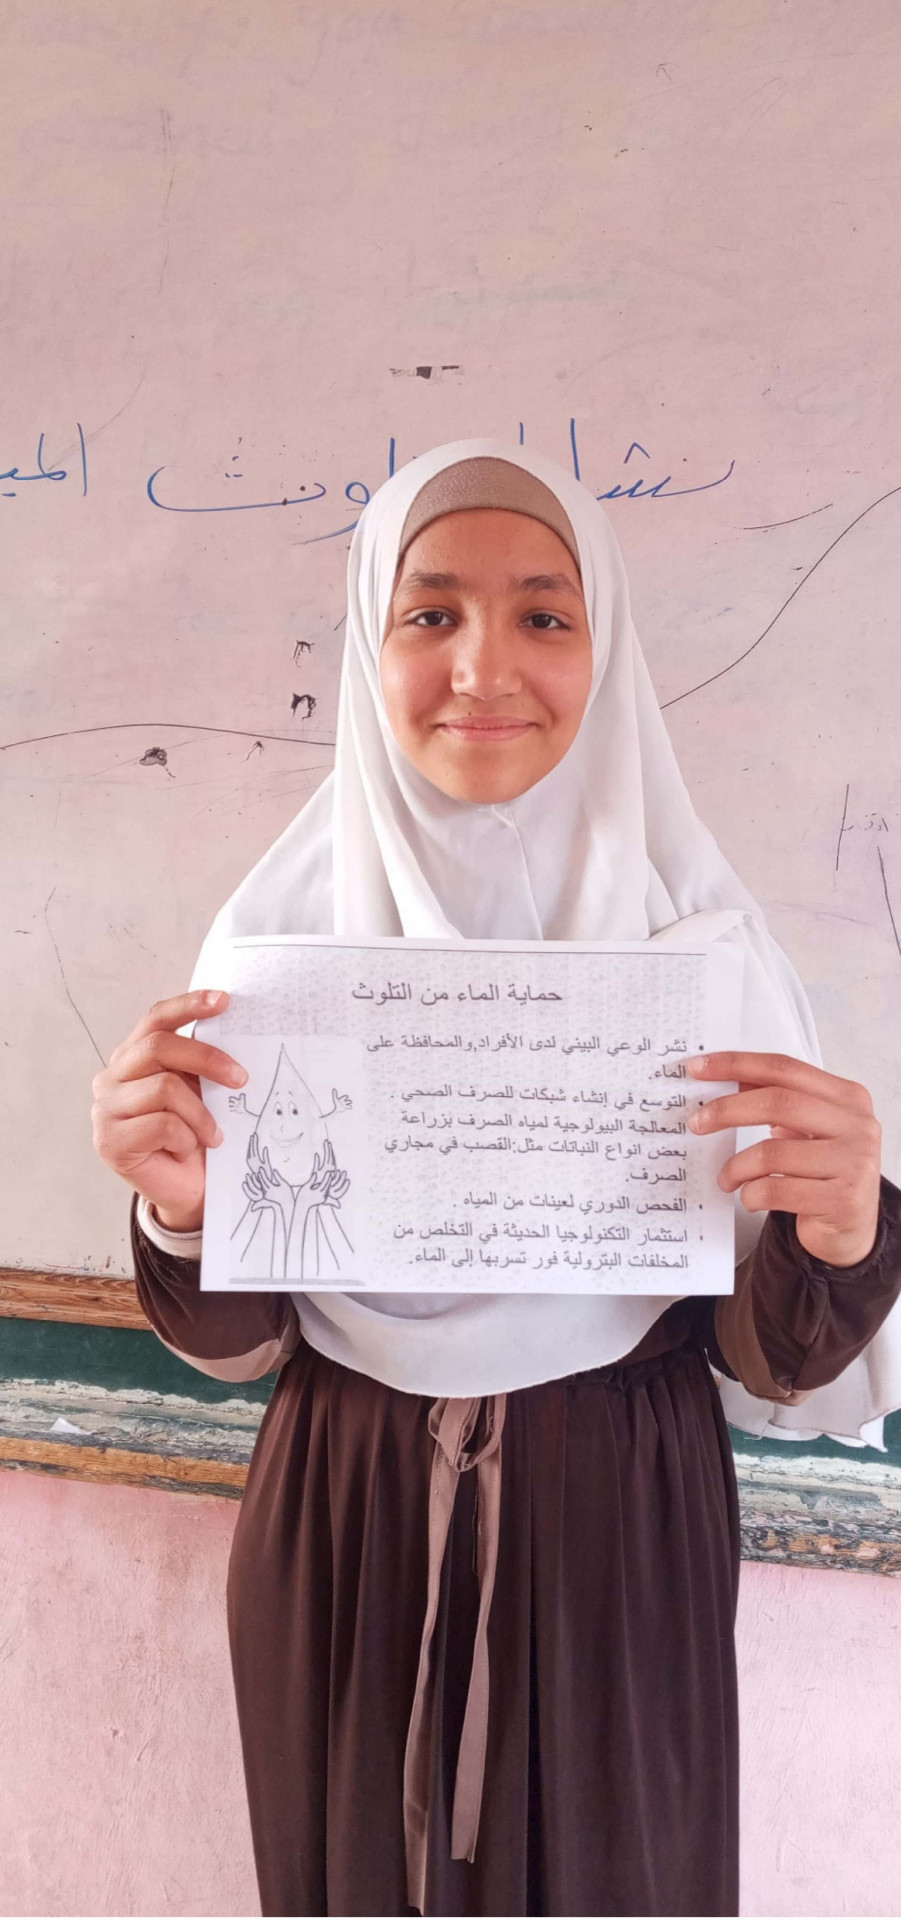 نشا تلوث الميا
حماية الماء من التلوث
• نشر الوعي البيئي لدى الأفراد,والمحافظة على
الماء.
• التوسع في إنشاء شبكات للصرف الصحي .
المعالجة البيولوجية لمياه الصرف بزراعة
بعض انواع النباتات مثل:القصب في مجاري
الصرف.
• الفحص الدوري لعينات من المياه .
• استثمار التكنولوجيا الحديثة في التخلص من
المخلفات البترولية فور تسربها إلى الماء.